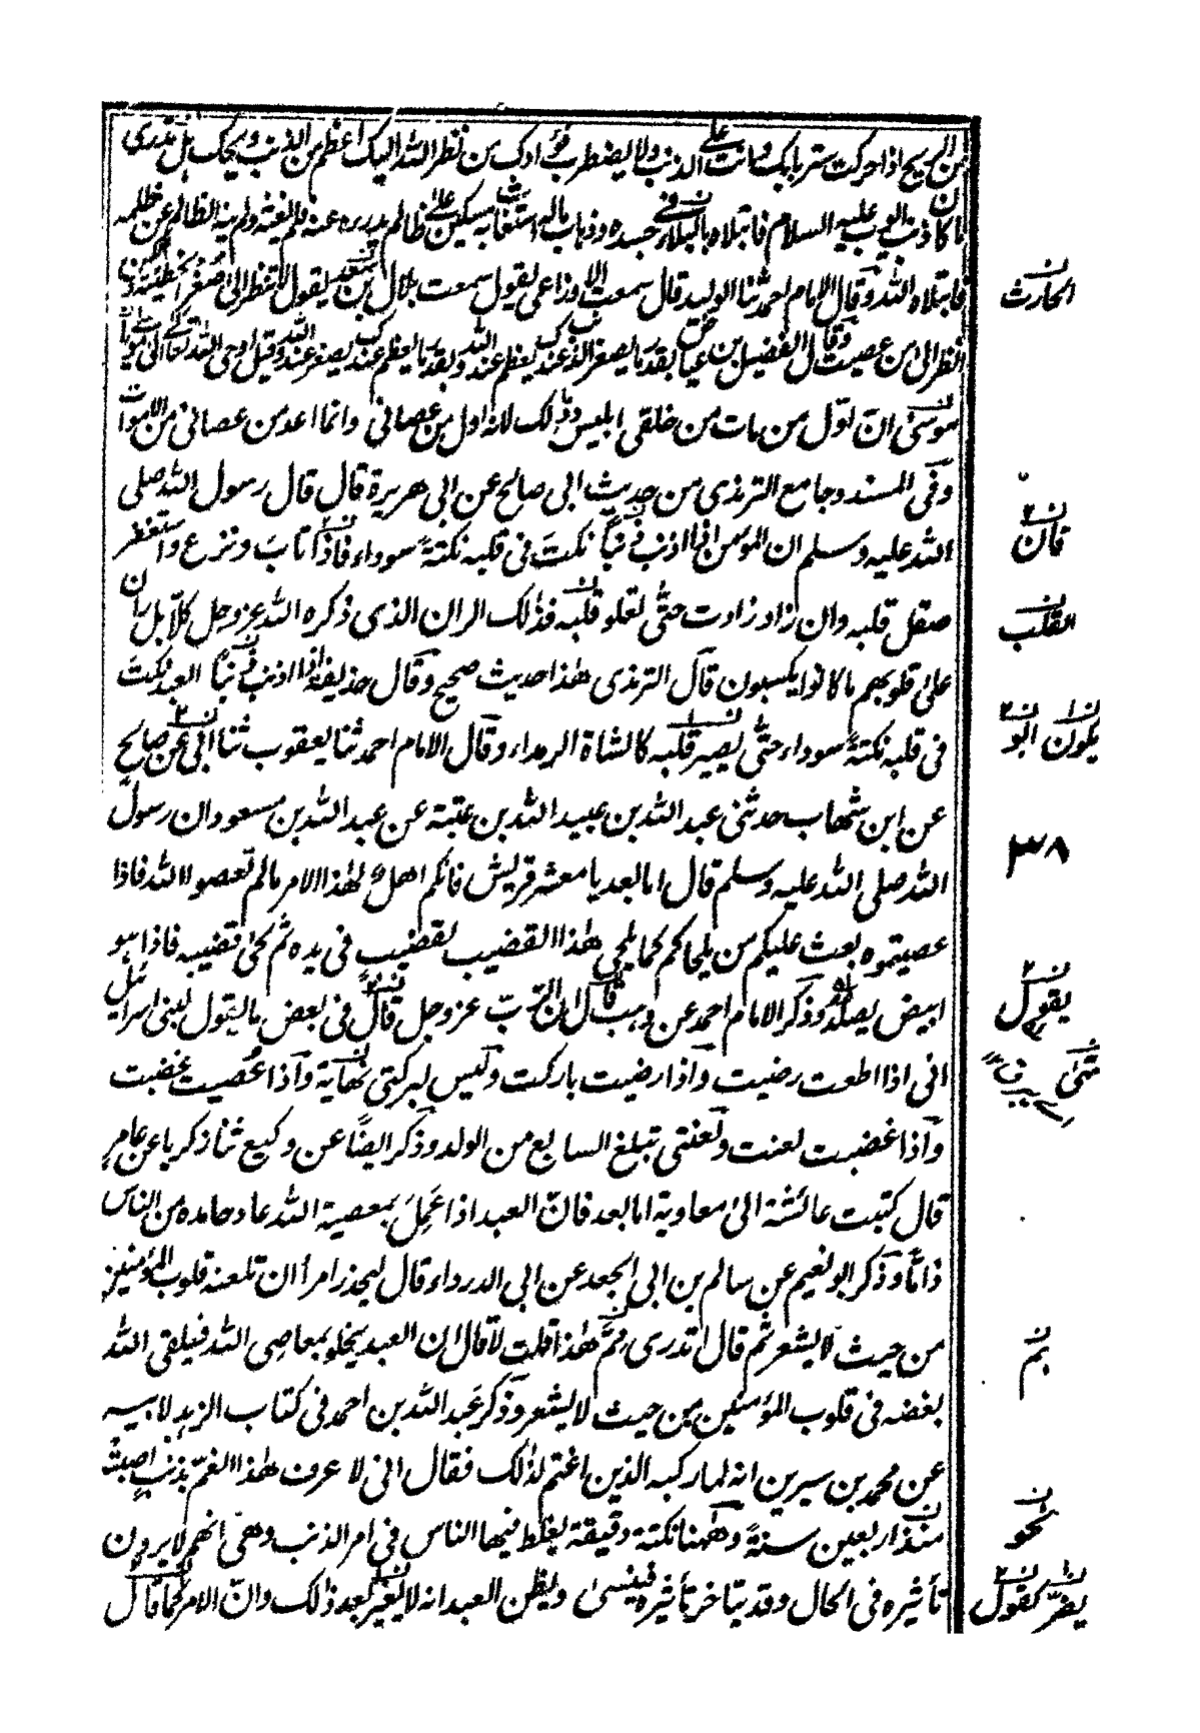 من الريح اذا حركت ستر بابك وانت على الذنب ولا يضطرب فؤادك من نظر الله اليك اعظم من الذنب ويحك هل تدرى
ما كان ذنب ايوب عليه السلام فابتلاه بالبلاء فى جسده وذهاب ماله استغاث به مسكين على ظالم يدرءه عنه فلم يغثه ولم ينه الظالم عن ظلمه
فابتلاه الله وقال الامام احمد ثنا الوليد قال سمعت الاوزاعى يقول سمعت بلال بن سعد يقول لا تنظر الى صغر الخطيئة ولكن
انظر الى من عصيت وقال الفضيل بن عياض بقدر ما يصغر الذنب عندك يعظم عند الله وبقدر ما يعظم عندك يصغر عند الله وقيل اوحى الله تعالى الى موسى يا
موسى ان اول من مات من خلقى ابليس وذلك لانه اول من عصانى وانما اعد من عصانى من الاموات
وفى المسند وجامع الترمذى من حديث ابى صالح عن ابى هريرة قال قال رسول الله صلى
الله عليه وسلم ان المؤمن اذا اذنب ذنبا نكتت فى قلبه نكتة سوداء فاذا تاب ونزع واستغفر
صقل قلبه وان زاد زادت حتى تعلو قلبه فذلك الران الذى ذكره الله عز وجل كلا بل ران
على قلوبهم ما كانوا يكسبون قال الترمذى هذا حديث صحيح وقال حذيفة اذا اذنب العبد ذنبا نكت
فى قلبه نكتة سوداء حتى يصير قلبه كالشاة الرمداء وقال الامام احمد ثنا يعقوب ثنا ابى عن صالح
عن ابن شهاب حدثنى عبد الله بن عبيد الله بن عتبة عن عبد الله بن مسعود ان رسول
الله صلى الله عليه وسلم قال اما بعد يا معشر قريش فانكم اهل لهذا الامر ما لم تعصوا الله فاذا
عصيتموه بعث عليكم من يلحاكم كما يلحى هذا القضيب لقضيب فى يده ثم لحى قضيبه فاذا هو
ابيض يصلد وذكر الامام احمد عن وهب قال ان الرب عز وجل قال فى بعض ما يقول لبنى اسرائيل
انى اذا اطعت رضيت واذا رضيت باركت وليس لبركتى نهاية واذا عصيت غضبت
واذا غضبت لعنت ولعنتى تبلغ السابع من الولد وذكر ايضا عن وكيع ثنا زكريا عن عامر
قال كتبت عائشة الى معاوية اما بعد فان العبد اذا عمل بمعصية الله عاد حامده من الناس
ذاما وذكر ابو نعيم عن سالم بن ابى الجعد عن ابى الدرداء قال ليحذر امرأ ان تلعنه قلوب المؤمنين
من حيث لا يشعر ثم قال اتدرى مم هذا قلت لا قال ان العبد يخلو بمعاصى الله فيلقى الله
بغضه فى قلوب المؤمنين من حيث لا يشعر وذكر عبد الله بن احمد فى كتاب الزهد لابيه
عن محمد بن سيرين انه لما ركبه الدين اغتم لذلك فقال انى لا عرف هذا الغم بذنب اصبته
منذ اربعين سنة وههنا نكتة دقيقة يغلط فيها الناس فى امر الذنب وهى انهم لا يرون
تأثيره فى الحال وقد يتاخر تأثيره فينسى ويظن العبد انه لا يغير بعد ذلك وان الامر كما قال
الحارث
فان
القلب
يكون ابو
٣٨
يقول
بم
نحو